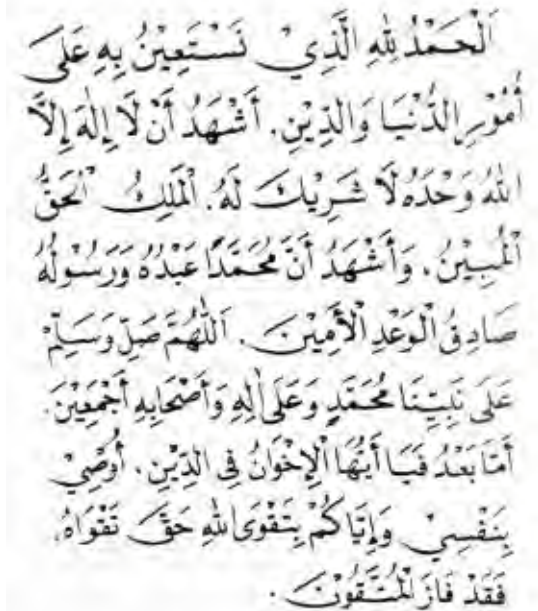 اَلْحَمْدُ لِلّٰهِ الَّذِيْ نَسْتَعِيْنُ بِهِ عَلَى
أُمُوْرِ الدُّنْيَا وَالدِّيْنِ. أَشْهَدُ أَنْ لَا إِلٰهَ إِلَّا
اللهُ وَحْدَهُ لَا شَرِيْكَ لَهُ. اَلْمَلِكُ الْحَقُّ
الْمُبِيْنُ. وَأَشْهَدُ أَنَّ مُحَمَّدًا عَبْدُهُ وَرَسُوْلُهُ
صَادِقُ الْوَعْدِ الْأَمِيْنَ. اَللّٰهُمَّ صَلِّ وَسَلِّمْ
عَلَى نَبِيِّنَا مُحَمَّدٍ وَعَلَى اٰلِهِ وَأَصْحَابِهِ أَجْمَعِيْنَ.
أَمَّا بَعْدُ فَيَا أَيُّهَا الْإِخْوَانُ فِى الدِّيْنِ. أُوصِيْ
بِنَفْسِيْ وَإِيَّاكُمْ بِتَقْوَى اللهِ حَقَّ تَقْوَاهُ.
فَقَدْ فَازَ الْمُتَّقُوْنَ.